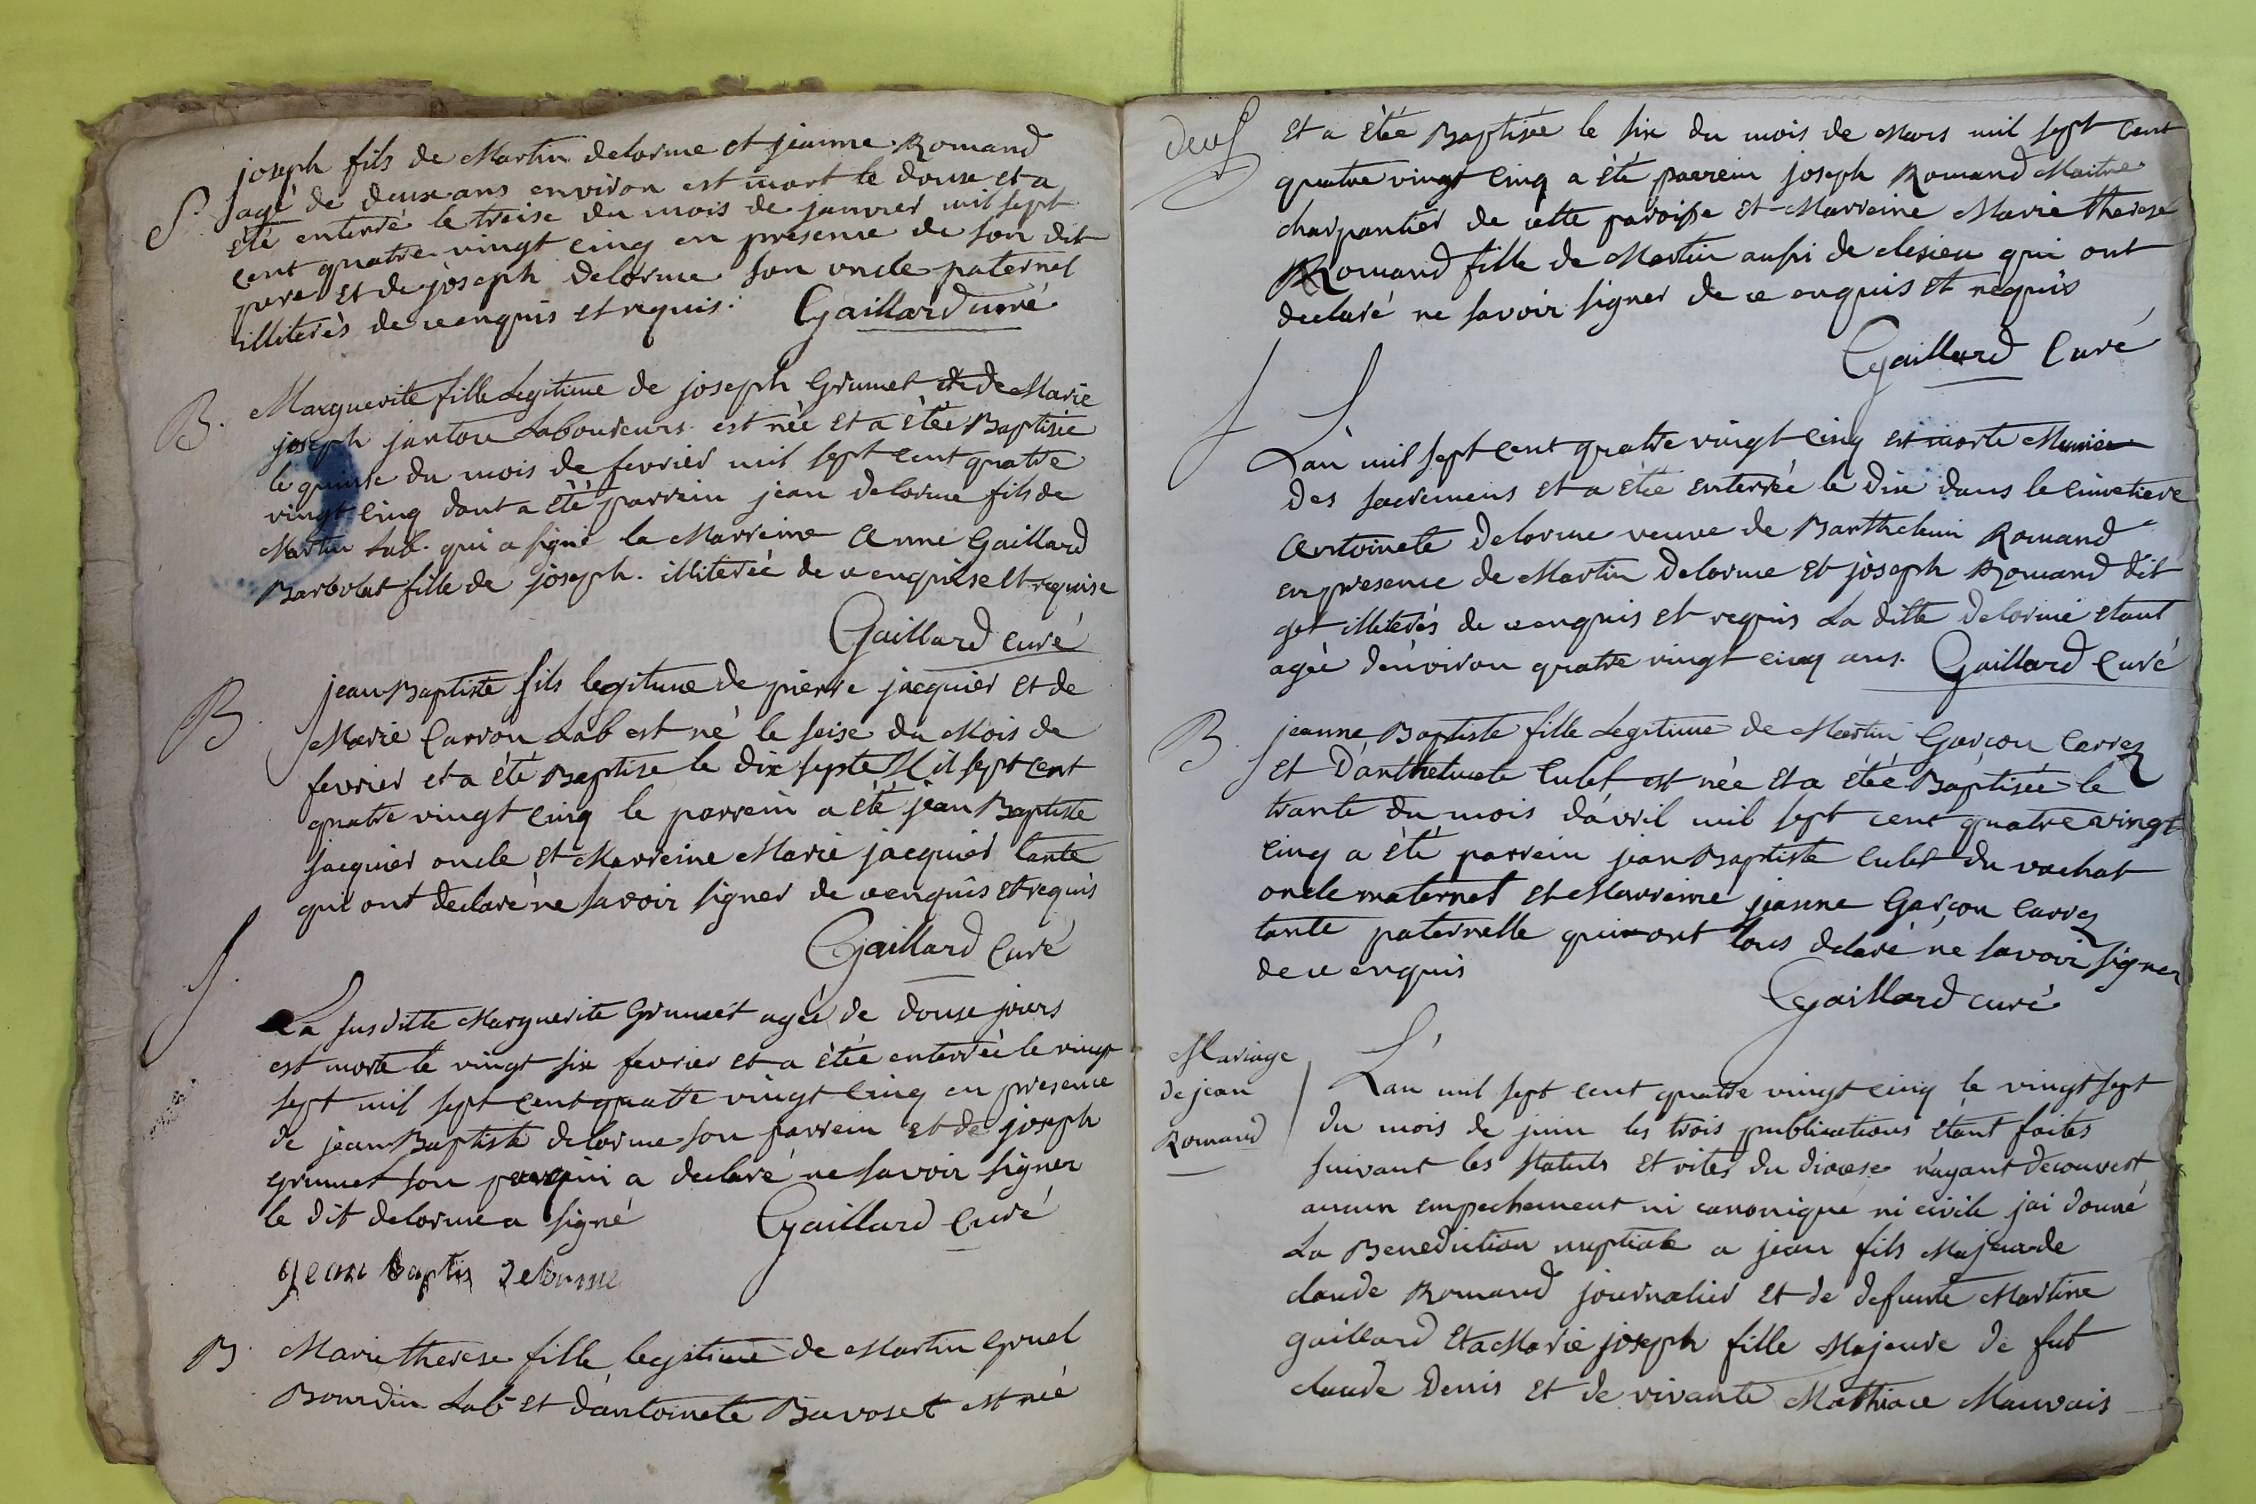 joseph fils de Martin delorme et jeanne Romand
S. agé de deux ans environ est mort le douse et a
été enterré le treise du mois de janvier mil sept
cent quatre vingt cinq en presence de son dit
pere et de joseph delorme son oncle paternel
illiterés de ce enquis et requis. Gaillard curé
B. Marguerite fille Legitime de joseph Grumet et de Marie
joseph jantou Laboureurs est née et a étée Baptisée
le quinse du mois de fevrier mil sept cent quatre
vingt cinq dont a été parrein jean delorme fils de
Martin Lab. qui a signé la Marreine Anne Gaillard
Barbolat fille de joseph. illiterée de ce enquise et requise
Gaillard curé
B. jean Baptiste fils legitime de pierre jacquier et de
Marie Carrou Lab est né le seise du Mois de
fevrier et a été Baptise le dix septe Mil sept cent
quatre vingt cinq le parrein a été jean Baptiste
jacquier oncle et Marreine Marie jacquier tante
qui ont declaré ne savoir signer de ce enquis et requis
Gaillard Curé
S. La susditte Marguerite Grumet agée de douse jours
est morte le vingt six fevrier et a étée enterrée le vingt
sept mil sept cent quatre vingt cinq en presence
de jean Baptiste delorme son parrein et de joseph
Grumet son qui a declaré ne savoir signer
le dit delorme a signé Gaillard curé
jean baptis delorme
B. Marie therese fille legitime de Martin Gruel
Bourdin Lab et d'antoinete Bavoset est née
deux
et a étée Baptisée le six du mois de Mars mil sept cent
quatre vingt cinq a été parrein joseph Romand Maitre
charpantier de cette paroisse et Marreine Marie therese
Romand fille de Martin aussi de clesieu qui ont
declaré ne savoir signer de ce enquis et requis
Gaillard Curé
S
L'an mil sept cent quatre vingt cinq est morte Munie
des sacremens et a étée enterrée le dix dans le cimetiere
Antoinete delorme veuve de Barthelemi Romand
en presence de Martin delorme et joseph Romand dit
get illiterés de ce enquis et requis La ditte delorme etant
agée d'environ quatre vingt cinq ans. Gaillard Curé
B. jeanne Baptiste fille Legitime de Martin Garçon Carrez
et Culet est née et a étée Baptisée le
trante du mois d'avril mil sept cent quatre vingt
cinq a été parrein jean Baptiste Culet du vachat
oncle maternel et Marreine jeanne Garçon Carrez
tante paternelle qui ont tous declaré ne savoir signer
de ce enquis
Gaillard curé
Mariage
de jean
Romand
L'an mil sept cent quatre vingt cinq le vingt sept
du mois de juin les trois publications étant faites
suivant les statuts et rites du diocese n'ayant decouvert
aucun empechement ni canonique ni civile jai donné
La Benediction nuptiale a jean fils Majeur de
claude Romand journalier et de defunte Martine
gaillard et a Marie joseph fille Majeure de fut
claude Denis et de vivante Mauvais